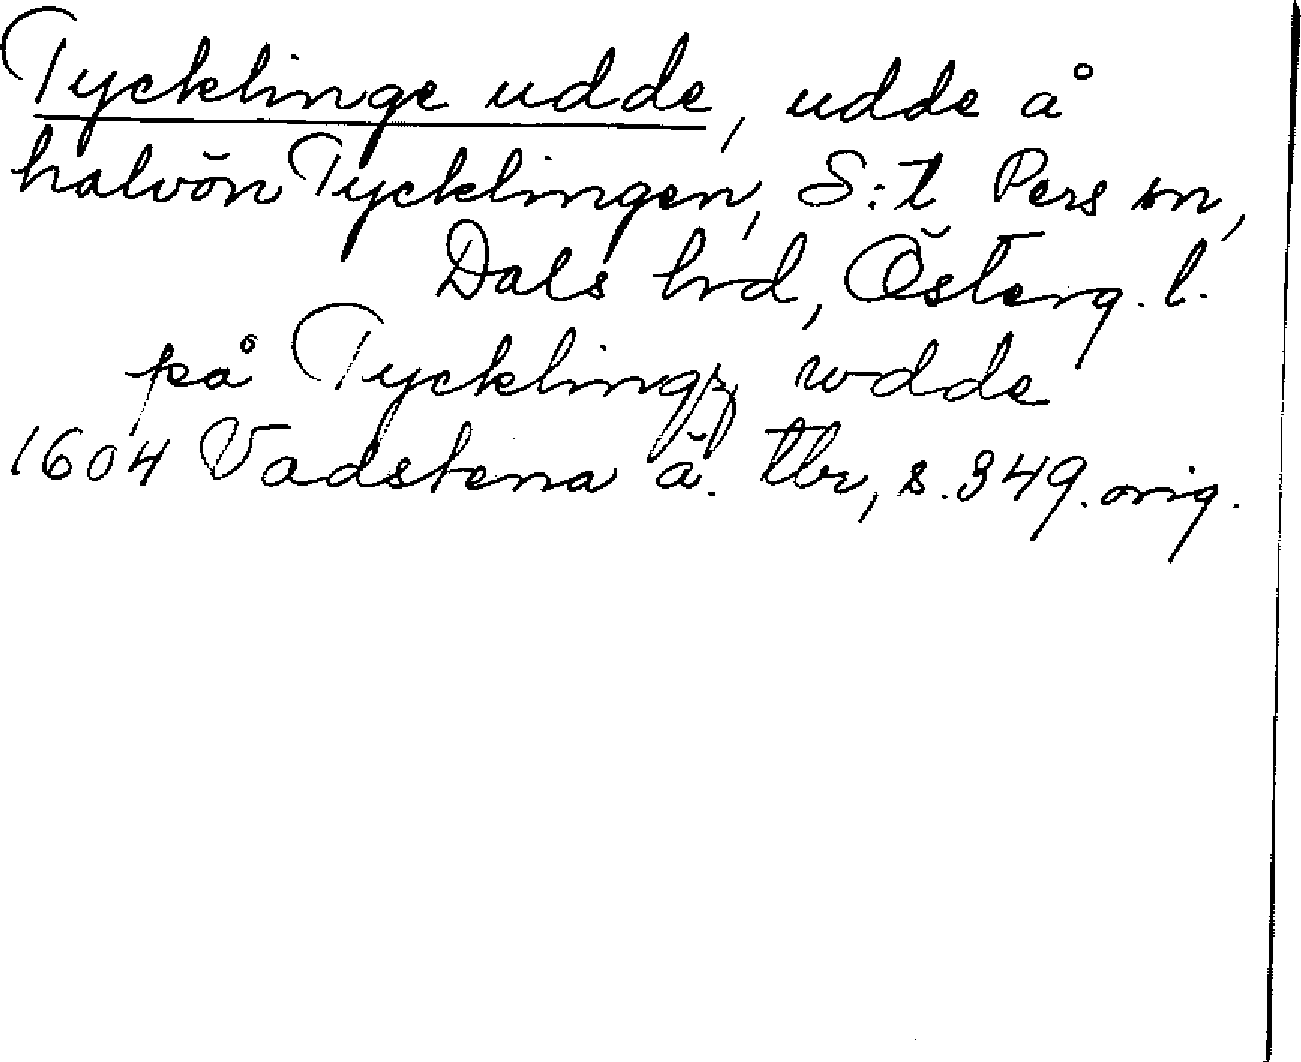 Tycklinge udde, udde å
halvön Tycklingen, S:t Pers sn,
Dals hd, Österg. l.
på Tycklingz wdde
1604 Vadstena ä. tbr, s. 349. orig.